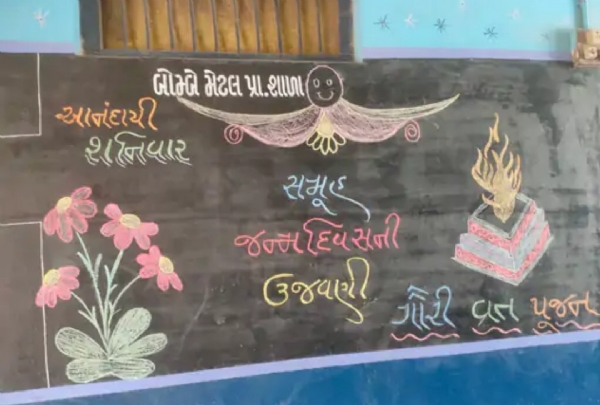 બોમ્બે મેટલ પ્રા.શાળા
આનંદાયી
શનિવાર
સમૂહ
જન્મદિવસની
ઉજવણી
ગૌરી વ્રત પૂજન